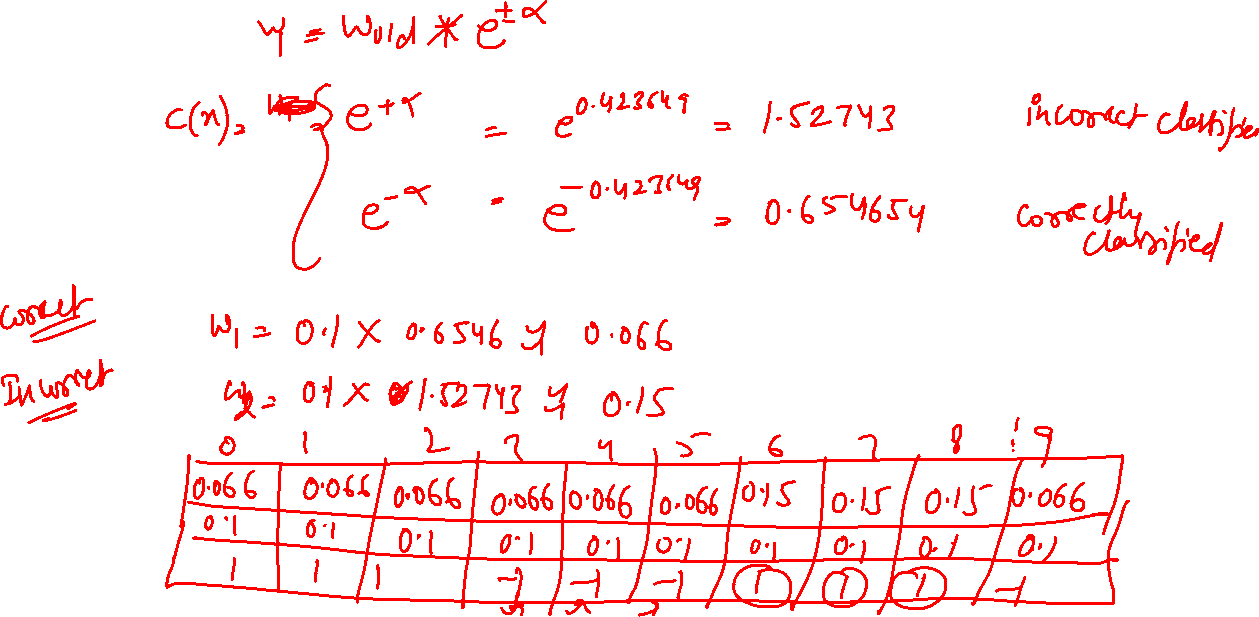 y = Wold * e^±α
C(x) = { e^+α = e^0.423649 = 1.52743 incorrect classifie
e^-α = e^-0.423649 = 0.654654 correctly classified
correct W1 = 0.1 × 0.6546 y 0.066
Incorrect W2 = 0.1 × 1.52743 y 0.15
0 1 2 3 4 5 6 7 8 9
0.066 0.066 0.066 0.066 0.066 0.066 0.15 0.15 0.15 0.066
0.1 0.1 0.1 0.1 0.1 0.1 0.1 0.1 0.1 0.1
1 1 1 -1 -1 -1 1 1 1 -1